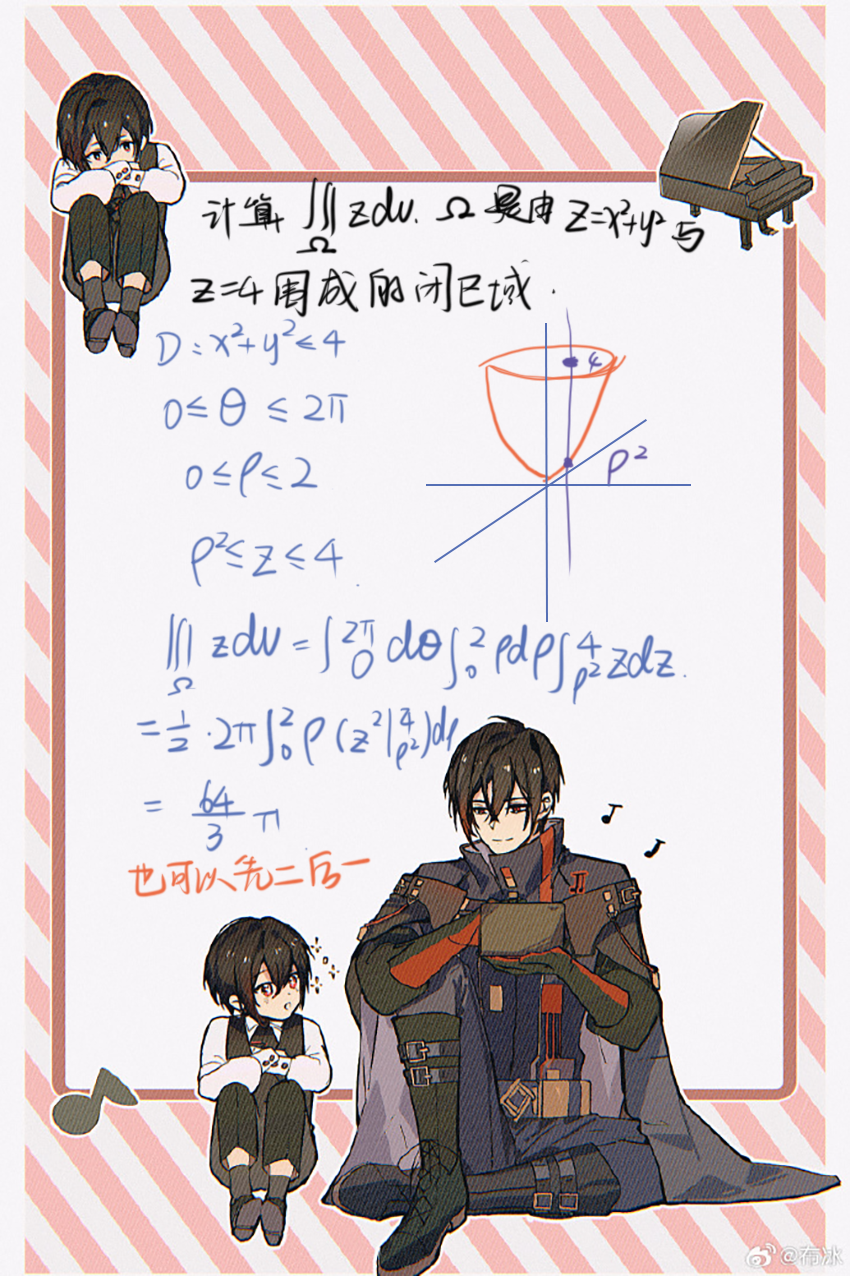 计算 ∭_Ω zdv. Ω 是由 z=x²+y² 与
z=4围成的闭区域.
D: x²+y²≤4
0≤θ≤2π
0≤ρ≤2
ρ²≤z≤4
4
ρ²
∭_Ω zdv = ∫₀^{2π} dθ ∫₀² ρdρ ∫_{ρ²}^4 zdz.
= 1/2 · 2π ∫₀² ρ (z²|_{ρ²}^4) dρ
= 64/3 π
也可以先二后一
@布冰